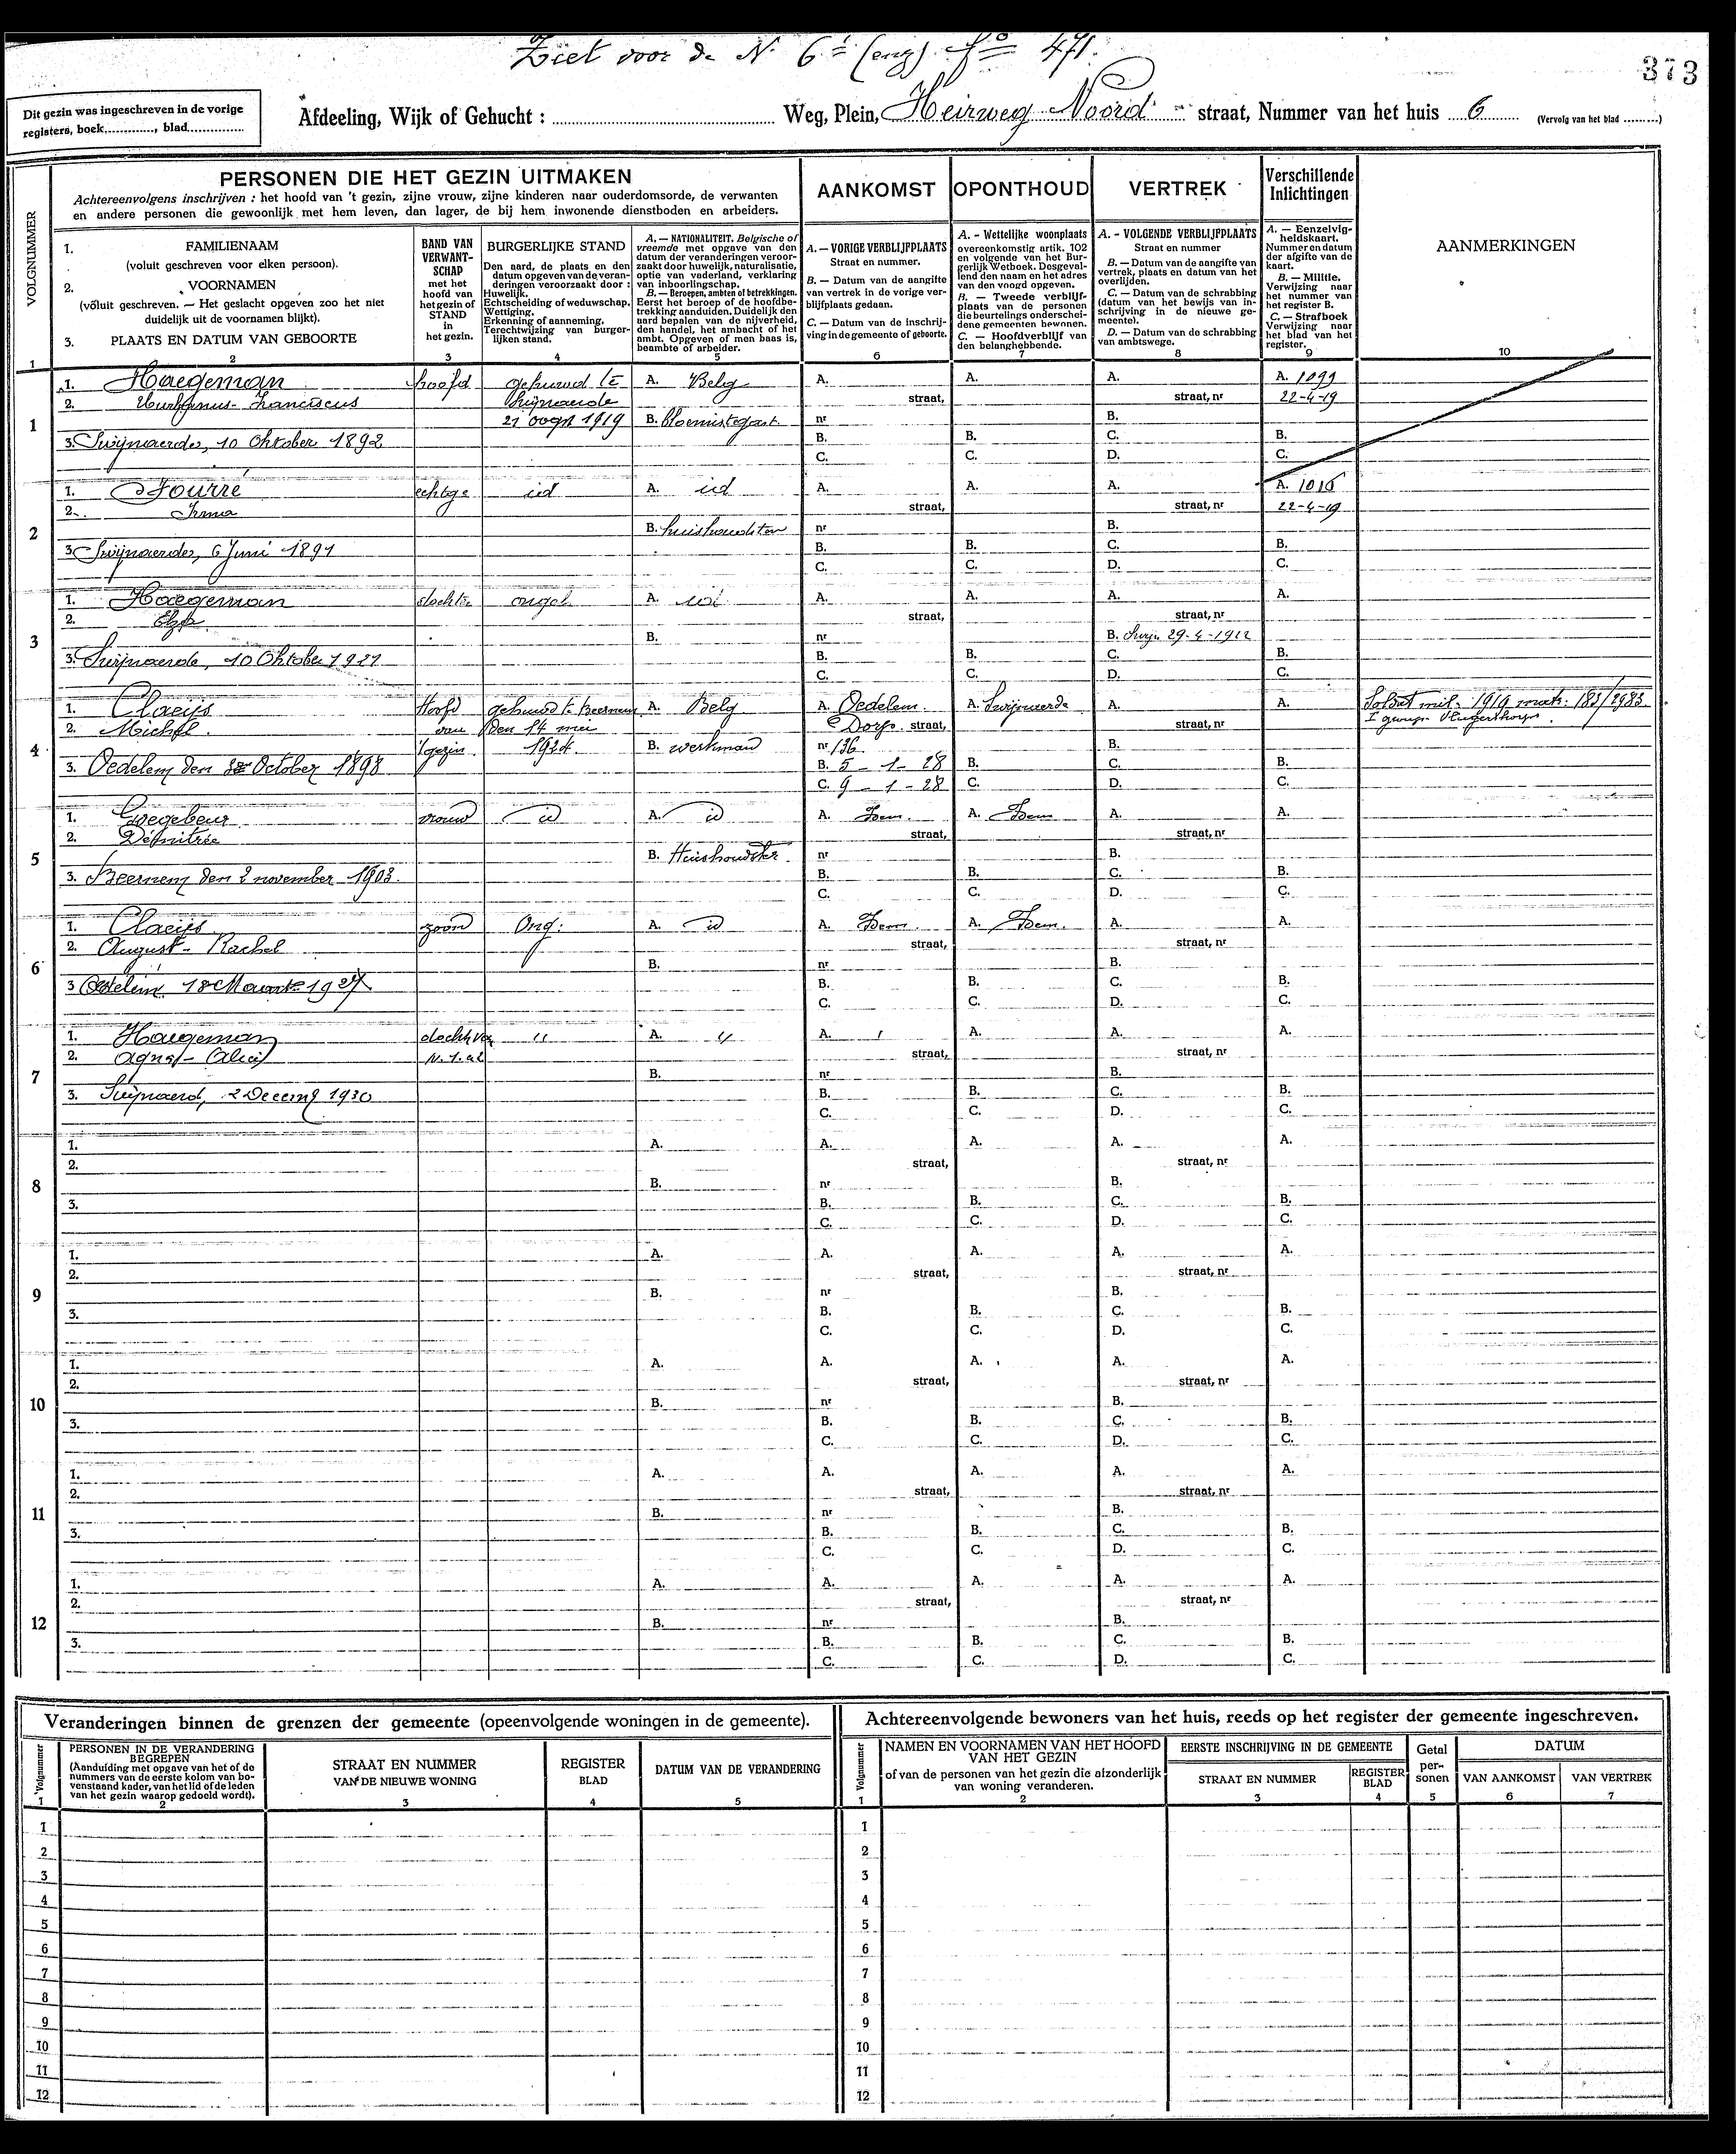 Ziet voor de N. 6 (eng) fo 471.
373
Dit gezin was ingeschreven in de vorige
registers, boek............, blad..............
Afdeeling, Wijk of Gehucht : ........ Weg, Plein, Heirweg Noord straat, Nummer van het huis 6 (Vervolg van het blad .........)
VOLGNUMMER
PERSONEN DIE HET GEZIN UITMAKEN
Achtereenvolgens inschrijven : het hoofd van 't gezin, zijne vrouw, zijne kinderen naar ouderdomsorde, de verwanten
en andere personen die gewoonlijk met hem leven, dan lager, de bij hem inwonende dienstboden en arbeiders.
AANKOMST
OPONTHOUD
VERTREK
Verschillende
Inlichtingen
1. FAMILIENAAM
(voluit geschreven voor elken persoon).
2. VOORNAMEN
(voluit geschreven. — Het geslacht opgeven zoo het niet
duidelijk uit de voornamen blijkt).
3. PLAATS EN DATUM VAN GEBOORTE
BAND VAN
VERWANT-
SCHAP
met het
hoofd van
het gezin of
STAND
in
het gezin.
BURGERLIJKE STAND
Den aard, de plaats en den
datum opgeven van de veran-
deringen veroorzaakt door :
Huwelijk.
Echtscheiding of weduwschap.
Wettiging.
Erkenning of aanneming.
Terechtwijzing van burger-
lijken stand.
A. — NATIONALITEIT. Belgische of
vreemde met opgave van den
datum der veranderingen veroor-
zaakt door huwelijk, naturalisatie,
optie van vaderland, verklaring
van inboorlingschap.
B. — Beroepen, ambten of betrekkingen.
Eerst het beroep of de hoofdbe-
trekking aanduiden. Duidelijk den
aard bepalen van de nijverheid,
den handel, het ambacht of het
ambt. Opgeven of men baas is,
beambte of arbeider.
A. — VORIGE VERBLIJFPLAATS
Straat en nummer.
B. — Datum van de aangifte
van vertrek in de vorige ver-
blijfplaats gedaan.
C. — Datum van de inschrij-
ving in de gemeente of geboorte.
A. - Wettelijke woonplaats
overeenkomstig artik. 102
en volgende van het Bur-
gerlijk Wetboek. Desgeval-
lend den naam en het adres
van den voogd opgeven.
B. — Tweede verblijf-
plaats van de personen
die beurtelings onderschei-
dene gemeenten bewonen.
C. — Hoofdverblijf van
den belanghebbende.
A. - VOLGENDE VERBLIJFPLAATS
Straat en nummer
B. — Datum van de aangifte van
vertrek, plaats en datum van het
overlijden.
C. — Datum van de schrabbing
(datum van het bewijs van in-
schrijving in de nieuwe ge-
meente).
D. — Datum van de schrabbing
van ambtswege.
A. — Eenzelvig-
heidskaart.
Nummer en datum
der afgifte van de
kaart.
B. — Militie.
Verwijzing naar
het nummer van
het register B.
C. — Strafboek
Verwijzing naar
het blad van het
register.
AANMERKINGEN
1 2 3 4 5 6 7 8 9 10
1
1. Haegeman hoofd gehuwd te A. Belg A. A. A. A. 1099
2. Franciscus Swijnaerde straat, straat, nr 22-4-19
21 oogst 1919 B. nr B.
3. Swijnaerde, 10 Oktober 1892 B. B. C. B.
C. C. D. C.
2
1. Fourré echtge id A. id A. A. A. A. 1015
2. Irma straat, straat, nr 22-4-19
B. huishoudster nr B.
3. Swijnaerde, 6 Juni 1891 B. B. C. B.
C. C. D. C.
3
1. Haegeman dochter ongeh. A. id A. A. A. A.
2. Elza straat, straat, nr
B. nr B. Swijn. 29-4-1922
3. Swijnaerde, 10 Oktober 1921 B. B. C. B.
C. C. D. C.
4
1. Claeijs Hoofd gehuwd te Beernem A. Belg A. Oedelem A. Swijnaerde A. A. Soldat mil. 1919 matr. 183/2983
2. Michel. van den 14 mei Dorp straat, straat, nr
't gezin 1924. B. werkman nr 136. B.
3. Oedelem den October 1898 B. 5 - 1 - 28 B. C. B.
C. 9 - 1 - 28 C. D. C.
5
1. Goegebeur vrouw id A. id A. Idem. A. Idem A. A.
2. Démitrée straat, straat, nr
B. Huishoudster nr B.
3. Beernem den 2 november 1903. B. B. C. B.
C. C. D. C.
6
1. Claeijs zoon Ong: A. id A. Idem. A. Idem. A. A.
2. August - Rachel straat, straat, nr
B. nr B.
3 Oedelem 18 Maart 1927 B. B. C. B.
C. C. D. C.
7
1. Haegeman docht. van " A. " A. A. A. A.
2. Agnes - Alice N. 1. a2 straat, straat, nr
B. nr B.
3. Swijnaerd, 2 Decemb 1930 B. B. C. B.
C. C. D. C.
8
1. A. A. A. A. A.
2. straat, straat, nr
B. nr B.
3. B. B. C. B.
C. C. D. C.
9
1. A. A. A. A. A.
2. straat, straat, nr
B. nr B.
3. B. B. C. B.
C. C. D. C.
10
1. A. A. A. A. A.
2. straat, straat, nr
B. nr B.
3. B. B. C. B.
C. C. D. C.
11
1. A. A. A. A. A.
2. straat, straat, nr
B. nr B.
3. B. B. C. B.
C. C. D. C.
12
1. A. A. A. A. A.
2. straat, straat, nr
B. nr B.
3. B. B. C. B.
C. C. D. C.
Veranderingen binnen de grenzen der gemeente (opeenvolgende woningen in de gemeente).
Volgnummer
PERSONEN IN DE VERANDERING
BEGREPEN
(Aanduiding met opgave van het of de
nummers van de eerste kolom van bo-
venstaand kader, van het lid of de leden
van het gezin waarop gedoeld wordt).
STRAAT EN NUMMER
VAN DE NIEUWE WONING
REGISTER
BLAD
DATUM VAN DE VERANDERING
1 2 3 4 5
1
2
3
4
5
6
7
8
9
10
11
12
Achtereenvolgende bewoners van het huis, reeds op het register der gemeente ingeschreven.
Volgnummer
NAMEN EN VOORNAMEN VAN HET HOOFD
VAN HET GEZIN
of van de personen van het gezin die afzonderlijk
van woning veranderen.
EERSTE INSCHRIJVING IN DE GEMEENTE
STRAAT EN NUMMER
REGISTER
BLAD
Getal
per-
sonen
DATUM
VAN AANKOMST
VAN VERTREK
1 2 3 4 5 6 7
1
2
3
4
5
6
7
8
9
10
11
12